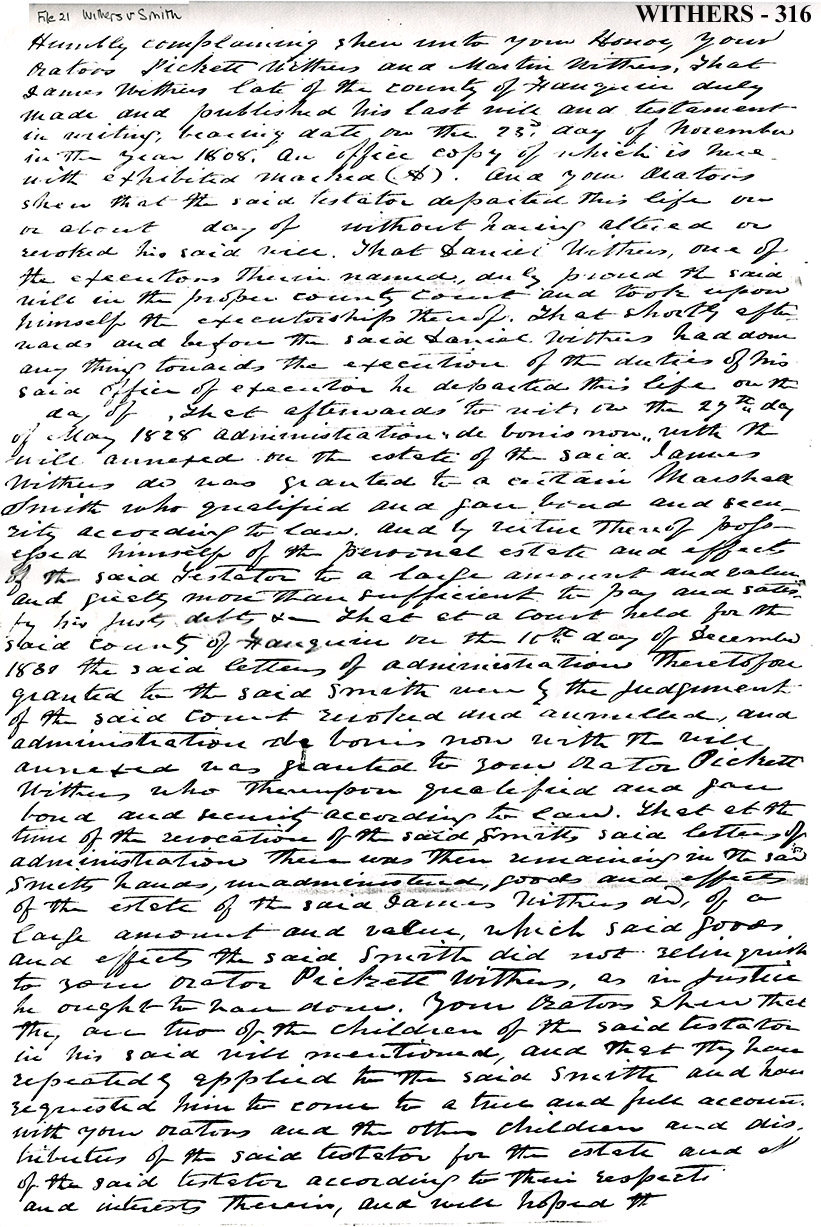 File 21 Withers v Smith
WITHERS - 316
Humbly complaining shew unto your Honor, your
orators Pickett Withers and Martin Withers, That
James Withers late of the county of Fauquier duly
made and published his last will and testament
in writing, bearing date on the 23d. day of November
in the year 1808. An office copy of which is here-
with exhibited marked (A). And your Orators
shew that the said testator departed this life on
or about day of without having altered or
revoked his said will. That Daniel Withers, one of
the executors therein named, duly proved the said
will in the proper county court and took upon
himself the executorship thereof. That shortly after-
wards and before the said Daniel Withers had done
any thing towards the execution of the duties of his
said office of executor he departed this life on the
day of . That afterwards to wit, on the 27th day
of May 1828 administration de bonis non, with the
will annexed on the estate of the said James
Withers decd was granted to a certain Marshall
Smith who qualified and gave bond and secu-
rity according to law. And by virtue thereof poss-
essed himself of the personal estate and effects
of the said Testator to a large amount and value
and greatly more than sufficient to pay and satis-
fy his just debts &c. That at a court held for the
said county of Fauquier on the 10th day of December
1830 the said letters of administration theretofore
granted to the said Smith were by the Judgment
of the said court revoked and annulled, and
administration de bonis non with the will
annexed was granted to your Orator Pickett
Withers who thereupon qualified and gave
bond and security according to law. That at the
time of the revocation of the said Smiths said letters of
administration there was then remaining in the said
Smiths hands, unadministered, goods and effects
of the estate of the said James Withers decd, of a
large amount and value, which said goods
and effects the said Smith did not relinquish
to your orator Pickett Withers, as in Justice
he ought to have done. Your Orators shew that
they are two of the children of the said testator
in his said will mentioned, and that they have
repeatedly applied to the said Smith and have
requested him to come to a true and full accoun
with your orators and the other children and dis-
tributees of the said testator for the estate and
of the said testator according to their respects
and interests therein, and well hoped th